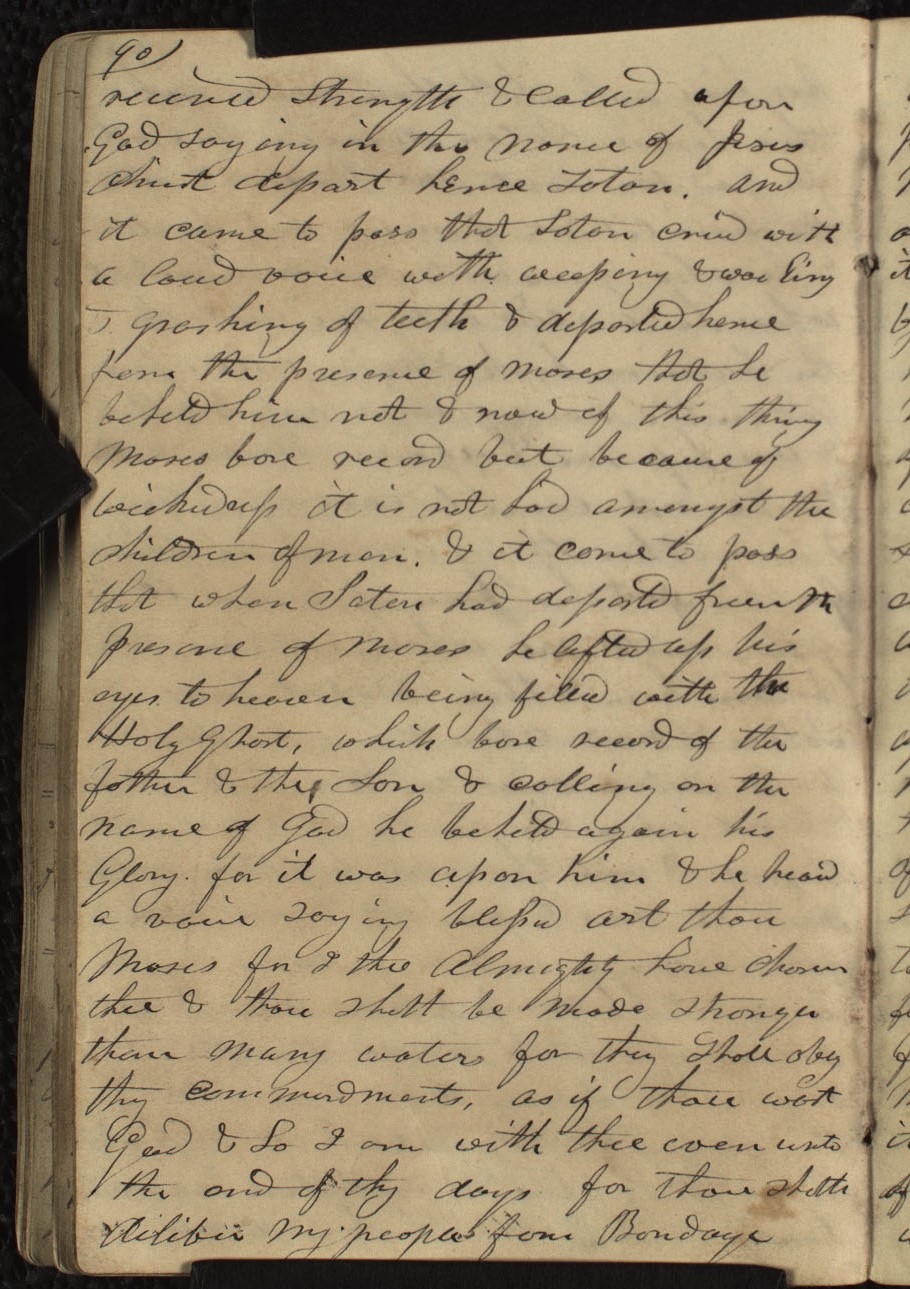 90)
received strength & called upon
God saying in the name of Jesus
christ depart hence Satan. and
it came to pass that Satan cried with
a loud voice with weeping & wailing
& gnashing of teeth & departed hence
from the presence of moses that he
beheld him not & now of this thing
Moses bore record but because of
wickedness it is not had amongst the
children of men. & it came to pass
that when Satan had departed from the
presence of Moses he lifted up his
eyes to heaven being filled with the
Holy Ghost, which bore record of the
father & the Son & calling on the
name of God he beheld again his
Glory. for it was upon him & he heard
a voice saying blessed art thou
Moses for I the Almighty have chosen
thee & thou shalt be made stronger
than many waters for they shall obey
thy commandments, as if thou wert
God & Lo I am with thee even unto
the end of thy days for thou shalt
diliver my people from Bondage